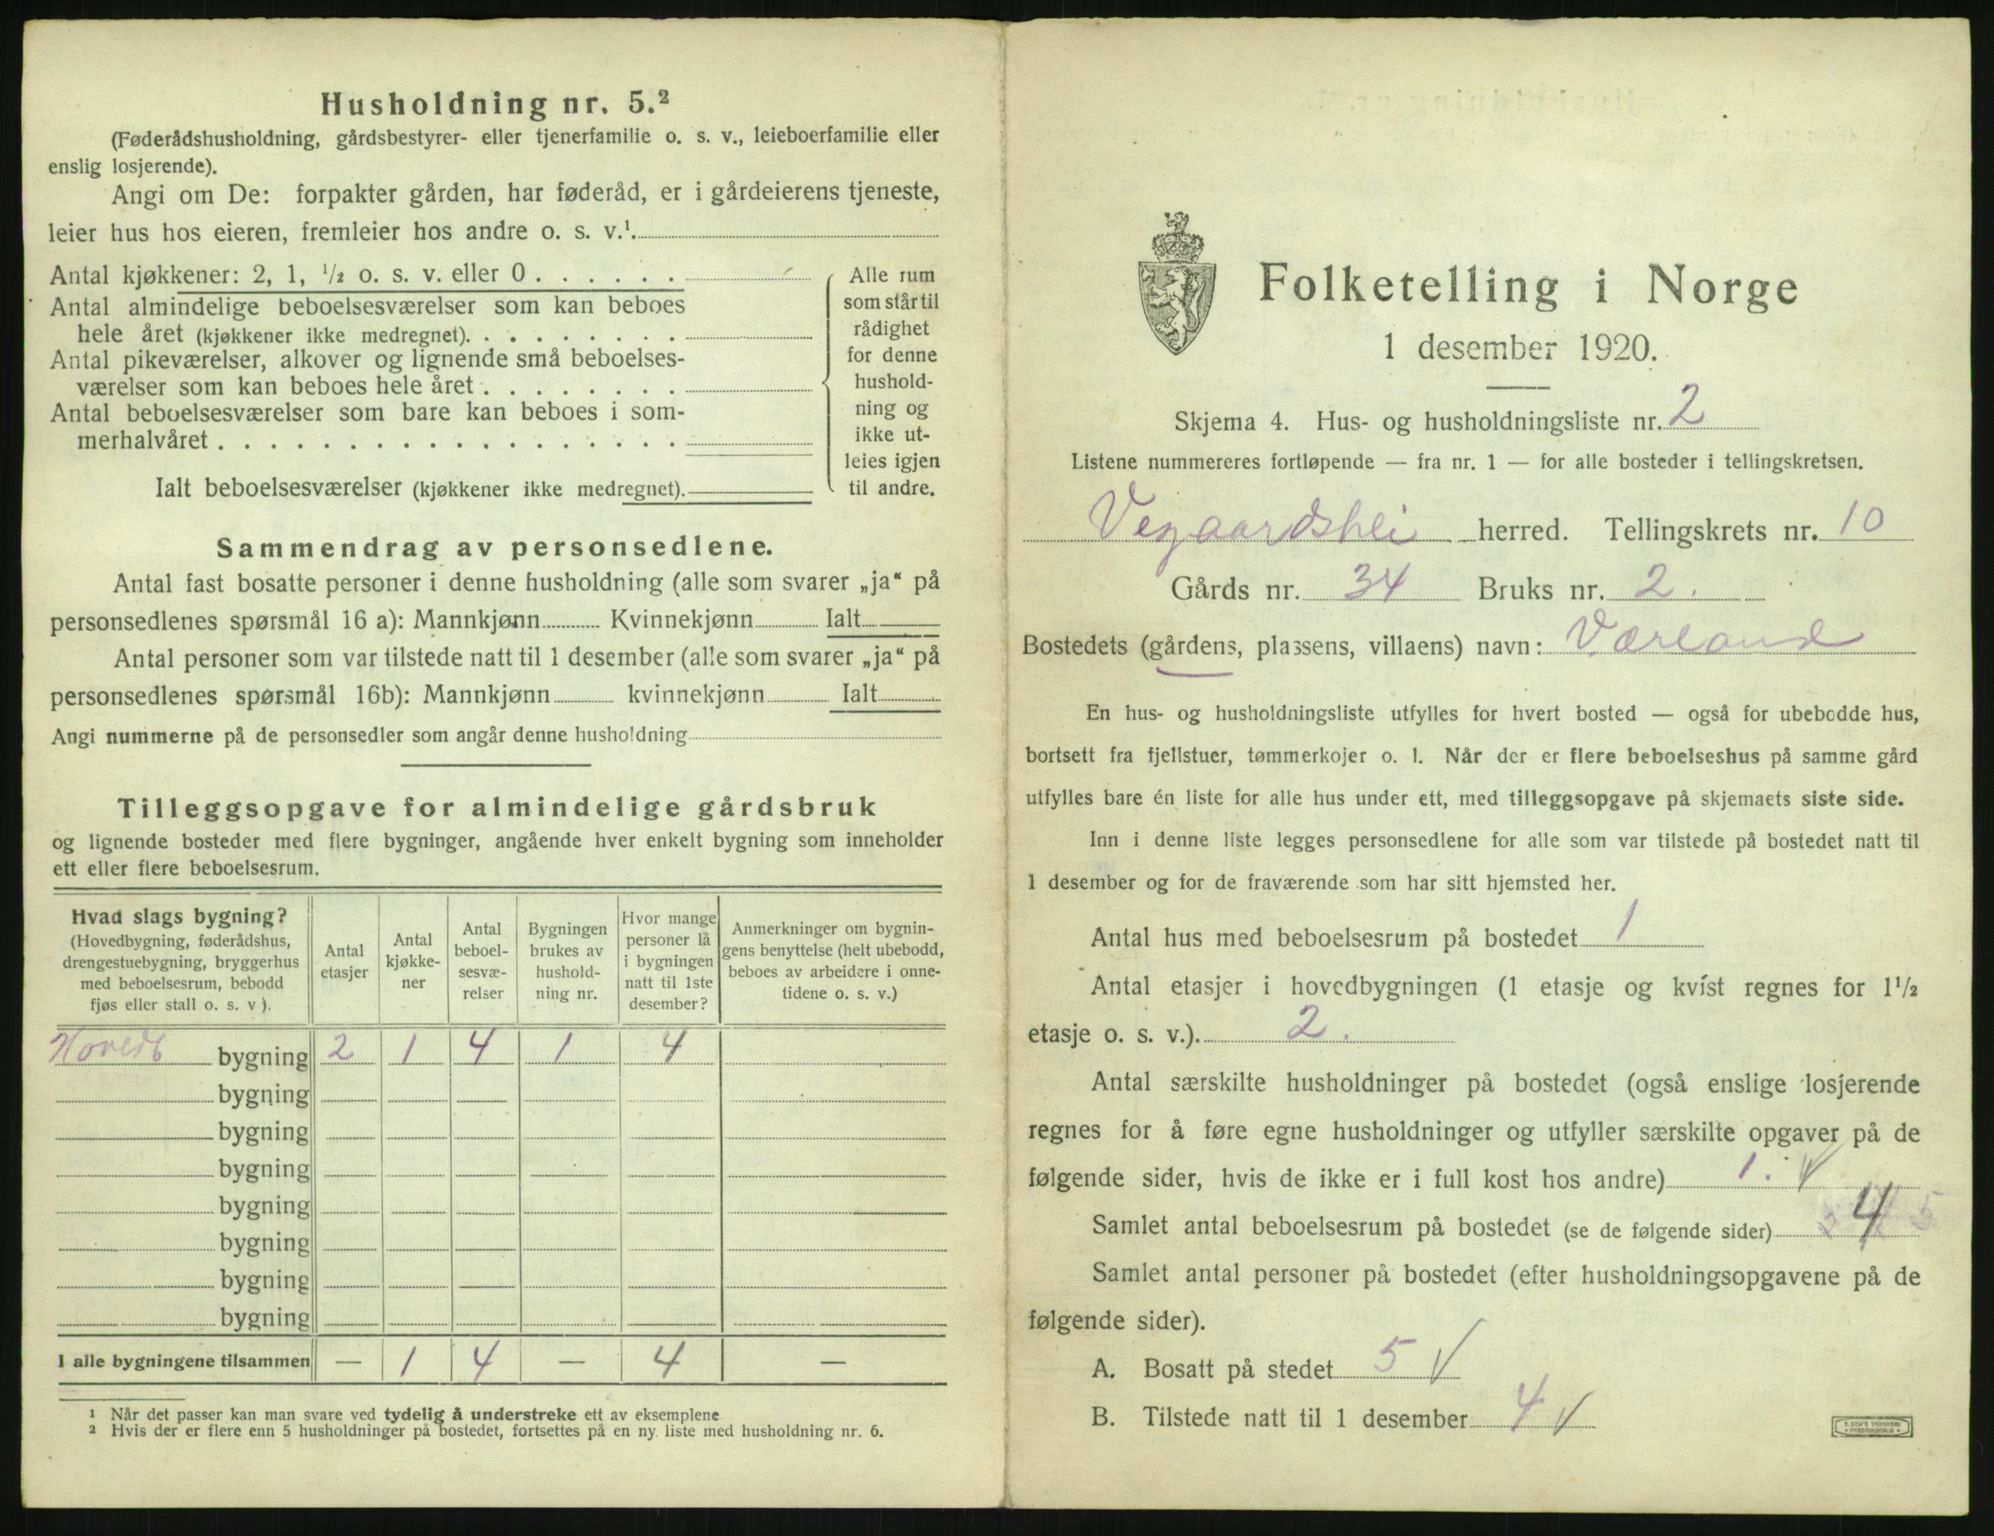 Husholdning nr. 5.²
(Føderådshusholdning, gårdsbestyrer- eller tjenerfamilie o. s. v., leieboerfamilie eller
enslig losjerende).
Angi om De: forpakter gården, har føderåd, er i gårdeierens tjeneste,
leier hus hos eieren, fremleier hos andre o. s. v.¹
Antal kjøkkener: 2, 1, ½ o. s. v. eller 0 . . . . . .
Antal almindelige beboelsesværelser som kan beboes
hele året (kjøkkener ikke medregnet). . . . . . . . .
Antal pikeværelser, alkover og lignende små beboelses-
værelser som kan beboes hele året . . . . . . . .
Antal beboelsesværelser som bare kan beboes i som-
merhalvåret . . . . . . . . . . . . . . . . . .
Ialt beboelsesværelser (kjøkkener ikke medregnet).
Alle rum
som står til
rådighet
for denne
hushold-
ning og
ikke ut-
leies igjen
til andre.
Sammendrag av personsedlene.
Antal fast bosatte personer i denne husholdning (alle som svarer „ja“ på
personsedlenes spørsmål 16 a): Mannkjønn Kvinnekjønn Ialt
Antal personer som var tilstede natt til 1 desember (alle som svarer „ja“ på
personsedlenes spørsmål 16b): Mannkjønn kvinnekjønn Ialt
Angi nummerne på de personsedler som angår denne husholdning
Tilleggsopgave for almindelige gårdsbruk
og lignende bosteder med flere bygninger, angående hver enkelt bygning som inneholder
ett eller flere beboelsesrum.
Hvad slags bygning?
(Hovedbygning, føderådshus,
drengestuebygning, bryggerhus
med beboelsesrum, bebodd
fjøs eller stall o. s. v ).
Antal
etasjer
Antal
kjøkke-
ner
Antal
beboel-
sesvæ-
relser
Bygningen
brukes av
hushold-
ning nr.
Hvor mange
personer lå
i bygningen
natt til 1ste
desember?
Anmerkninger om bygnin-
gens benyttelse (helt ubebodd,
beboes av arbeidere i onne-
tidene o. s. v.)
Hovedb bygning 2 1 4 1 4
bygning
bygning
bygning
bygning
bygning
bygning
bygning
I alle bygningene tilsammen — 1 4 — 4 —
¹ Når det passer kan man svare ved tydelig å understreke ett av eksemplene
² Hvis der er flere enn 5 husholdninger på bostedet, fortsettes på en ny liste med husholdning nr. 6.
Folketelling i Norge
1 desember 1920.
Skjema 4. Hus- og husholdningsliste nr. 2
Listene nummereres fortløpende — fra nr. 1 — for alle bosteder i tellingskretsen.
Vegaardshei herred. Tellingskrets nr. 10
Gårds nr. 34 Bruks nr. 2.
Bostedets (gårdens, plassens, villaens) navn: Værland
En hus- og husholdningsliste utfylles for hvert bosted — også for ubebodde hus,
bortsett fra fjellstuer, tømmerkojer o. l. Når der er flere beboelseshus på samme gård
utfylles bare én liste for alle hus under ett, med tilleggsopgave på skjemaets siste side.
Inn i denne liste legges personsedlene for alle som var tilstede på bostedet natt til
1 desember og for de fraværende som har sitt hjemsted her.
Antal hus med beboelsesrum på bostedet 1
Antal etasjer i hovedbygningen (1 etasje og kvist regnes for 1½
etasje o. s. v.). 2.
Antal særskilte husholdninger på bostedet (også enslige losjerende
regnes for å føre egne husholdninger og utfyller særskilte opgaver på de
følgende sider, hvis de ikke er i full kost hos andre) 1. √
Samlet antal beboelsesrum på bostedet (se de følgende sider) 3 4 5
Samlet antal personer på bostedet (efter husholdningsopgavene på de
følgende sider).
A. Bosatt på stedet 5 √
B. Tilstede natt til 1 desember 4 √